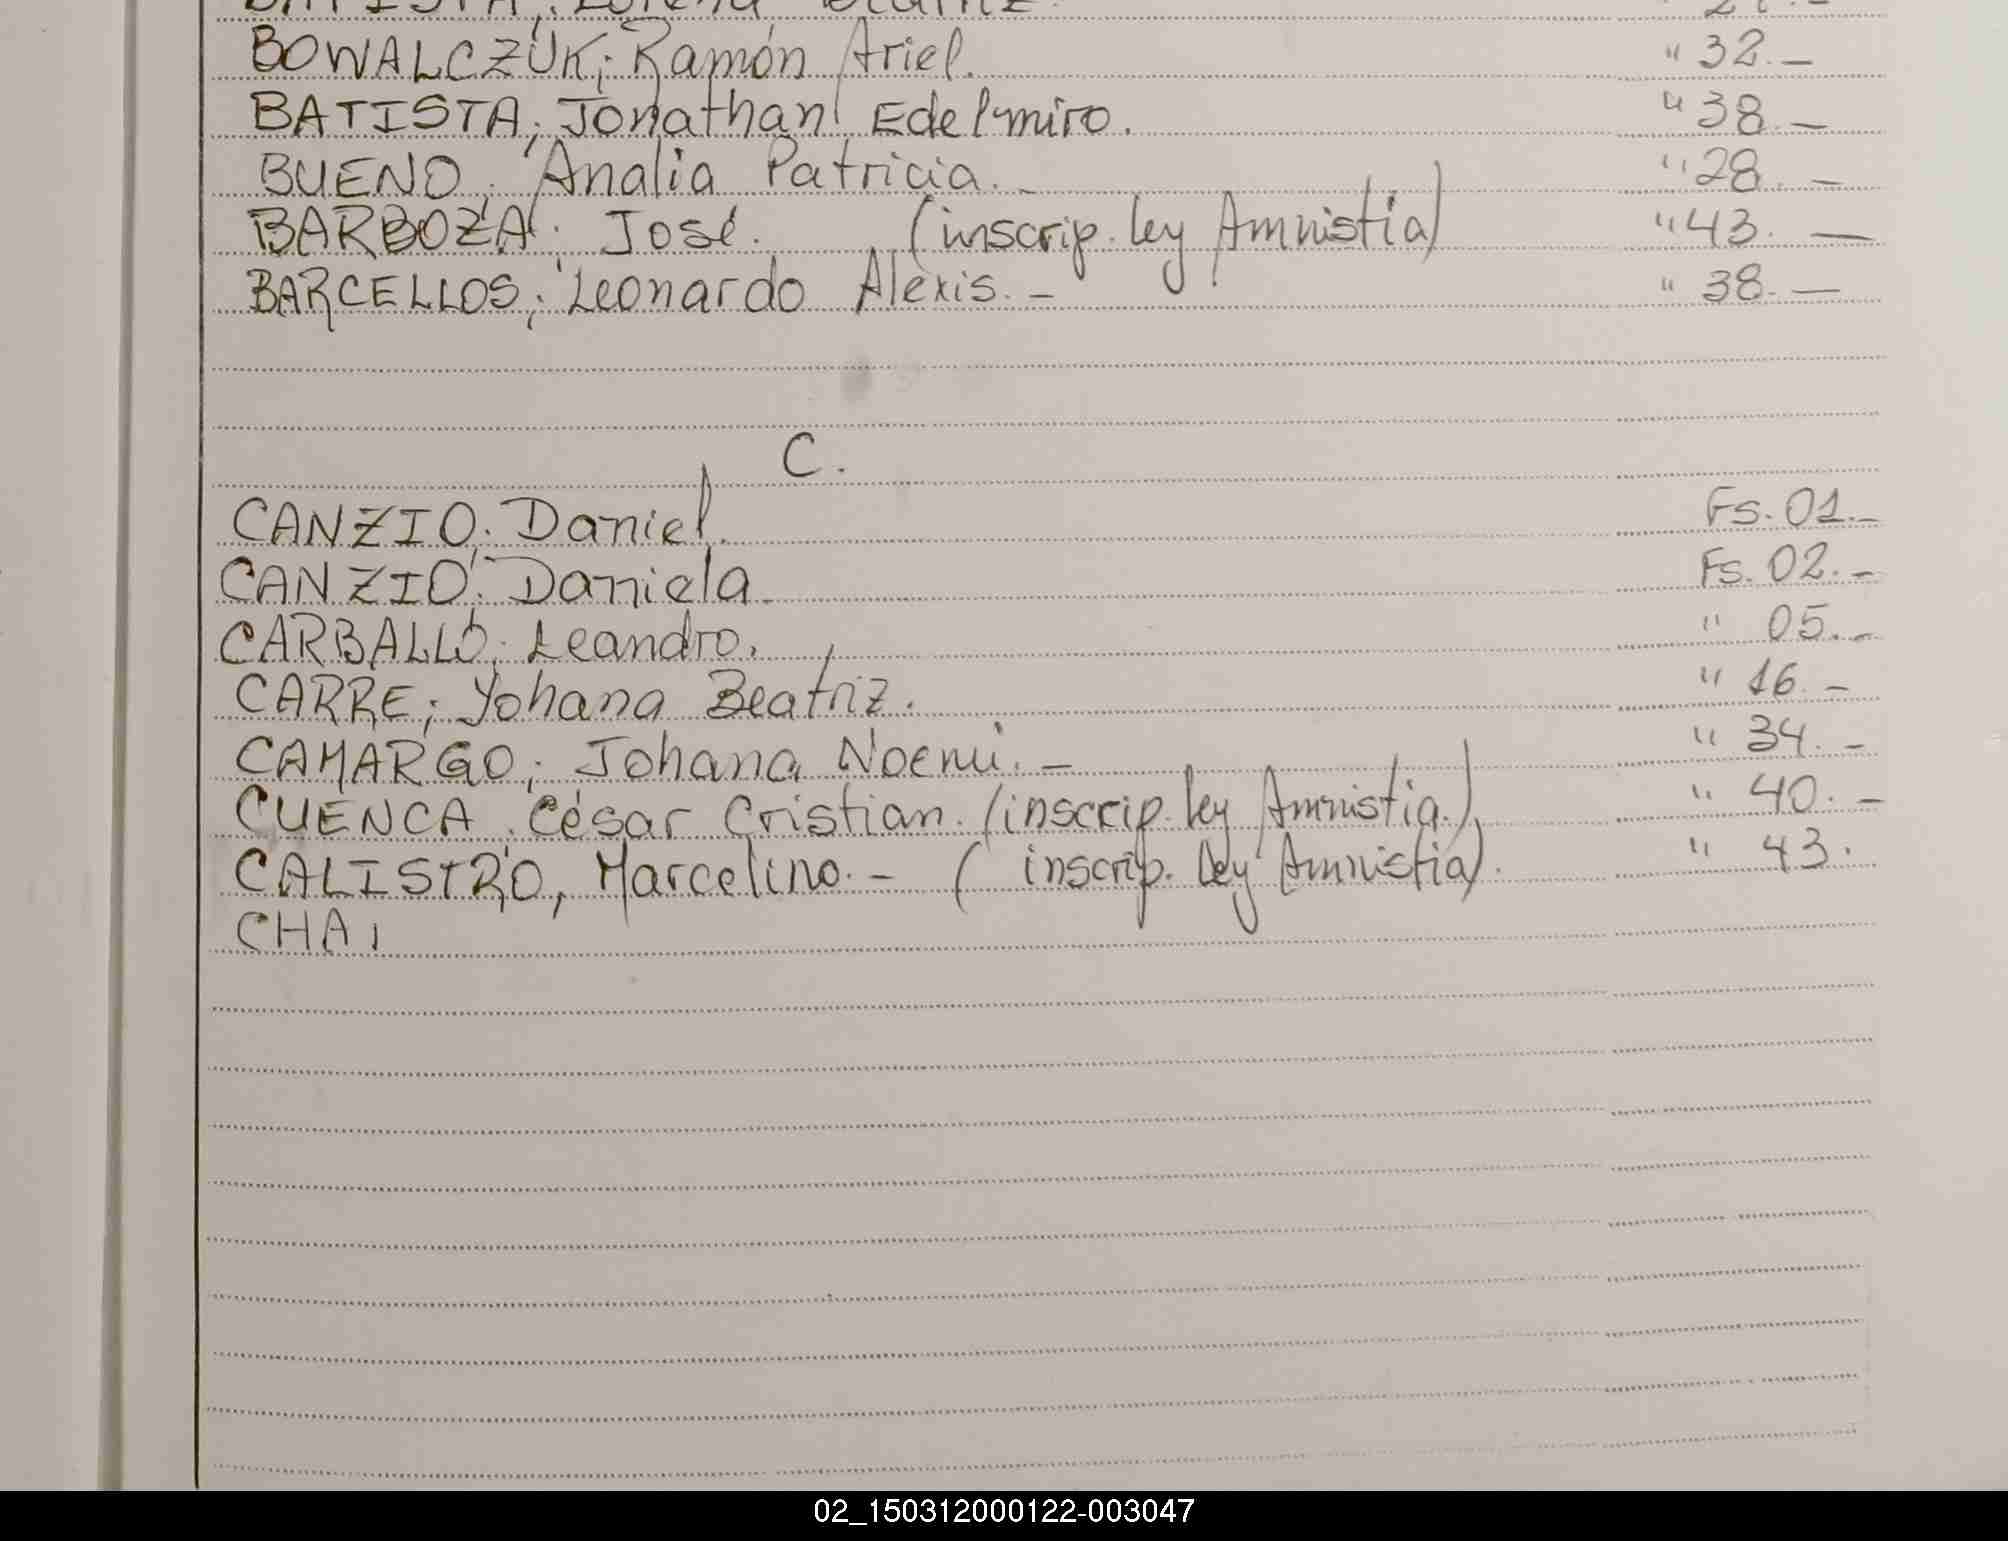 BATISTA, Lorena Beatriz.
BOWALCZUK, Ramón Ariel. " 32.-
BATISTA, Jonathan Edelmiro. " 38.-
BUENO, Analia Patricia.- " 28.-
BARBOZA, José. (inscrip. ley Amnistia) " 43.-
BARCELLOS, Leonardo Alexis.- " 38.-
C.
CANZIO, Daniel. Fs. 01.-
CANZIO, Daniela Fs. 02.-
CARBALLO, Leandro. " 05.-
CARRE, Yohana Beatriz. " 16.-
CAMARGO, Johana Noemi.- " 34.-
CUENCA, César Cristian. (inscrip. ley Amnistia.) " 40.-
CALISTRO, Marcelino.- ( inscrip. ley Amnistia). " 43.
CHA,
02_150312000122-003047